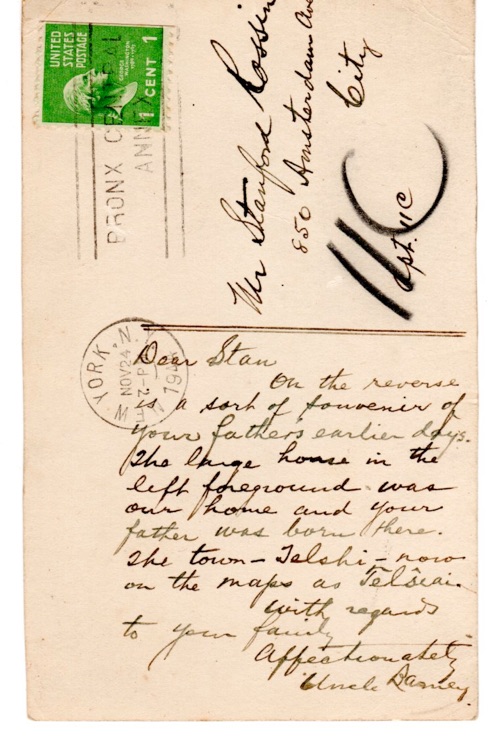 UNITED
STATES
POSTAGE
1 CENT 1
BRONX
ANNEX
YORK, N.
NOV 24
2-P
Mr Stanford
850 Amsterdam Ave
City
Apt. 11C
11C
Dear Stan
On the reverse
is a sort of souvenir of
your father's earlier days.
The large house in the
left foreground was
our home and your
father was born there.
The town - Telshi - now
on the maps as Telšiai.
with regards
to your family
Affectionately
Uncle Barney.